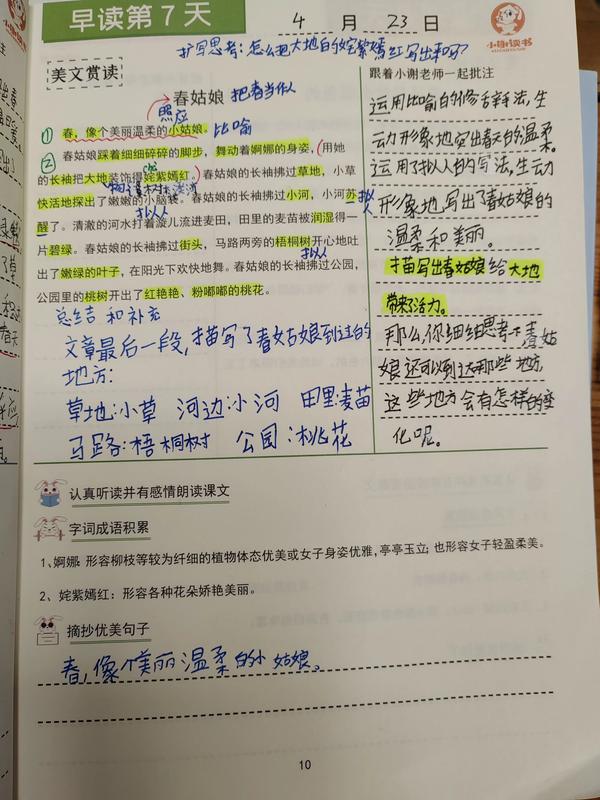 早读第7天
4月23日
小谢读书
扩写思考:怎么把大地白的姹紫嫣红写出来
美文赏读
跟着小谢老师一起批注
春姑娘 把春当作人
照应
①春,像个美丽温柔的小姑娘。比喻
②春姑娘踩着细细碎碎的脚步,舞动着婀娜的身姿,用她
的长袖把大地装饰得姹紫嫣红。春姑娘的长袖拂过草地,小草
快活地探出了嫩嫩的小脑袋。春姑娘的长袖拂过小河,小河苏
拟人
拟人
醒了。清澈的河水打着漩儿流进麦田,田里的麦苗被润湿得一
片碧绿。春姑娘的长袖拂过街头,马路两旁的梧桐树开心地吐
拟人
出了嫩绿的叶子,在阳光下欢快地舞。春姑娘的长袖拂过公园,
公园里的桃树开出了红艳艳、粉嘟嘟的桃花。
总结 和补充
文章最后一段,描写了春姑娘到过的
地方:
草地:小草 河边:小河 田里:麦苗
马路:梧桐树 公园:桃花
运用比喻的修辞手法,生
动形象地突出春天的温柔。
运用了拟人的写法,生动
形象地写出了春姑娘的
温柔和美丽。
描写出春姑娘给大地
带来了活力。
那么,你细细思考一下春姑
娘还可以到达那些地方,
这些地方会有怎样的变
化呢。
认真听读并有感情朗读课文
字词成语积累
1、婀娜:形容柳枝等较为纤细的植物体态优美或女子身姿优雅,亭亭玉立;也形容女子轻盈柔美。
2、姹紫嫣红:形容各种花朵娇艳美丽。
摘抄优美句子
春,像个美丽温柔的小姑娘。
10